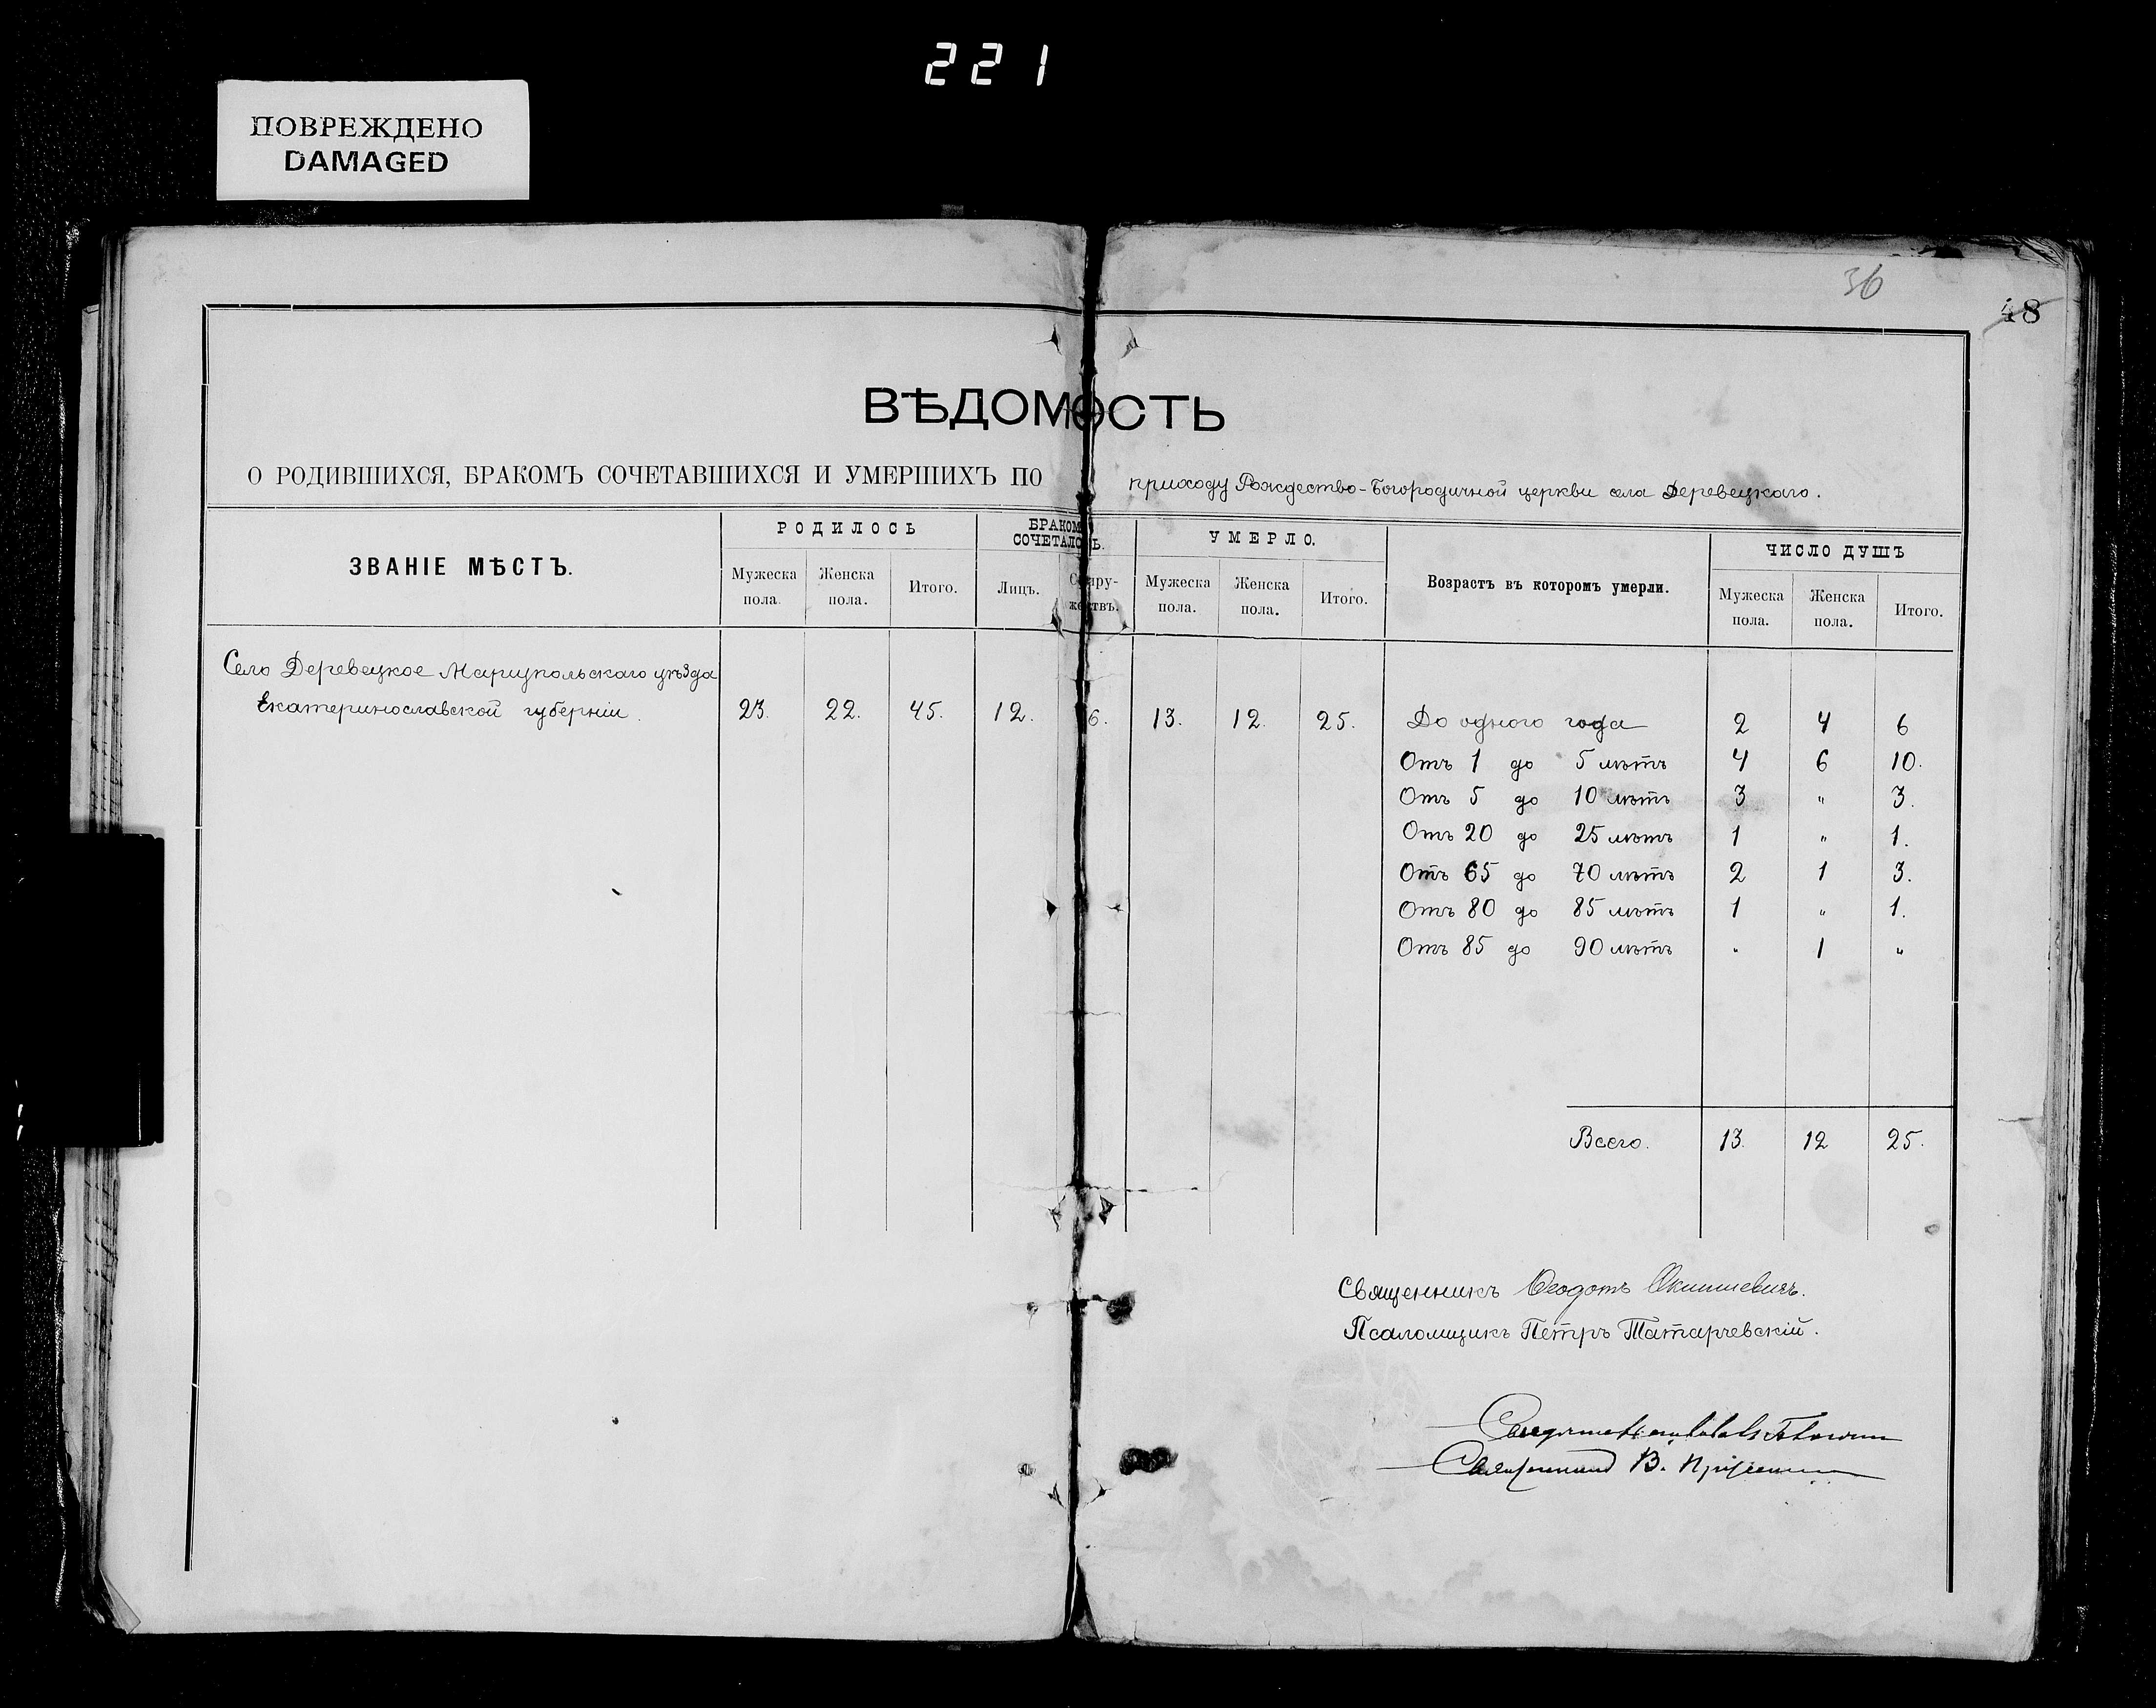 221
ПОВРЕЖДЕНО
DAMAGED
36
48
ВѢДОМОСТЬ
О РОДИВШИХСЯ, БРАКОМЪ СОЧЕТАВШИХСЯ И УМЕРШИХЪ ПО приходу Рождество-Богородичной церкви села Деревецкаго.
ЗВАНІЕ МѢСТЪ. РОДИЛОСЬ БРАКОМЪ СОЧЕТАЛОСЬ. УМЕРЛО. Возрастъ въ которомъ умерли. ЧИСЛО ДУШЪ
Мужеска пола. Женска пола. Итого. Лицъ. Супружествъ. Мужеска пола. Женска пола. Итого. Мужеска пола. Женска пола. Итого.
Село Деревецкое Маріупольскаго уѣзда
Екатеринославской губерніи. 23. 22. 45. 12. 6. 13. 12. 25. До одного года 2 4 6
Отъ 1 до 5 лѣтъ 4 6 10.
Отъ 5 до 10 лѣтъ 3 " 3.
Отъ 20 до 25 лѣтъ 1 " 1.
Отъ 65 до 70 лѣтъ 2 1 3.
Отъ 80 до 85 лѣтъ 1 " 1.
Отъ 85 до 90 лѣтъ " 1 "
Всего. 13. 12 25.
Священникъ Ѳеодотъ Окишевичъ.
Псаломщикъ Петръ Татарчевскій.
Священникъ В.